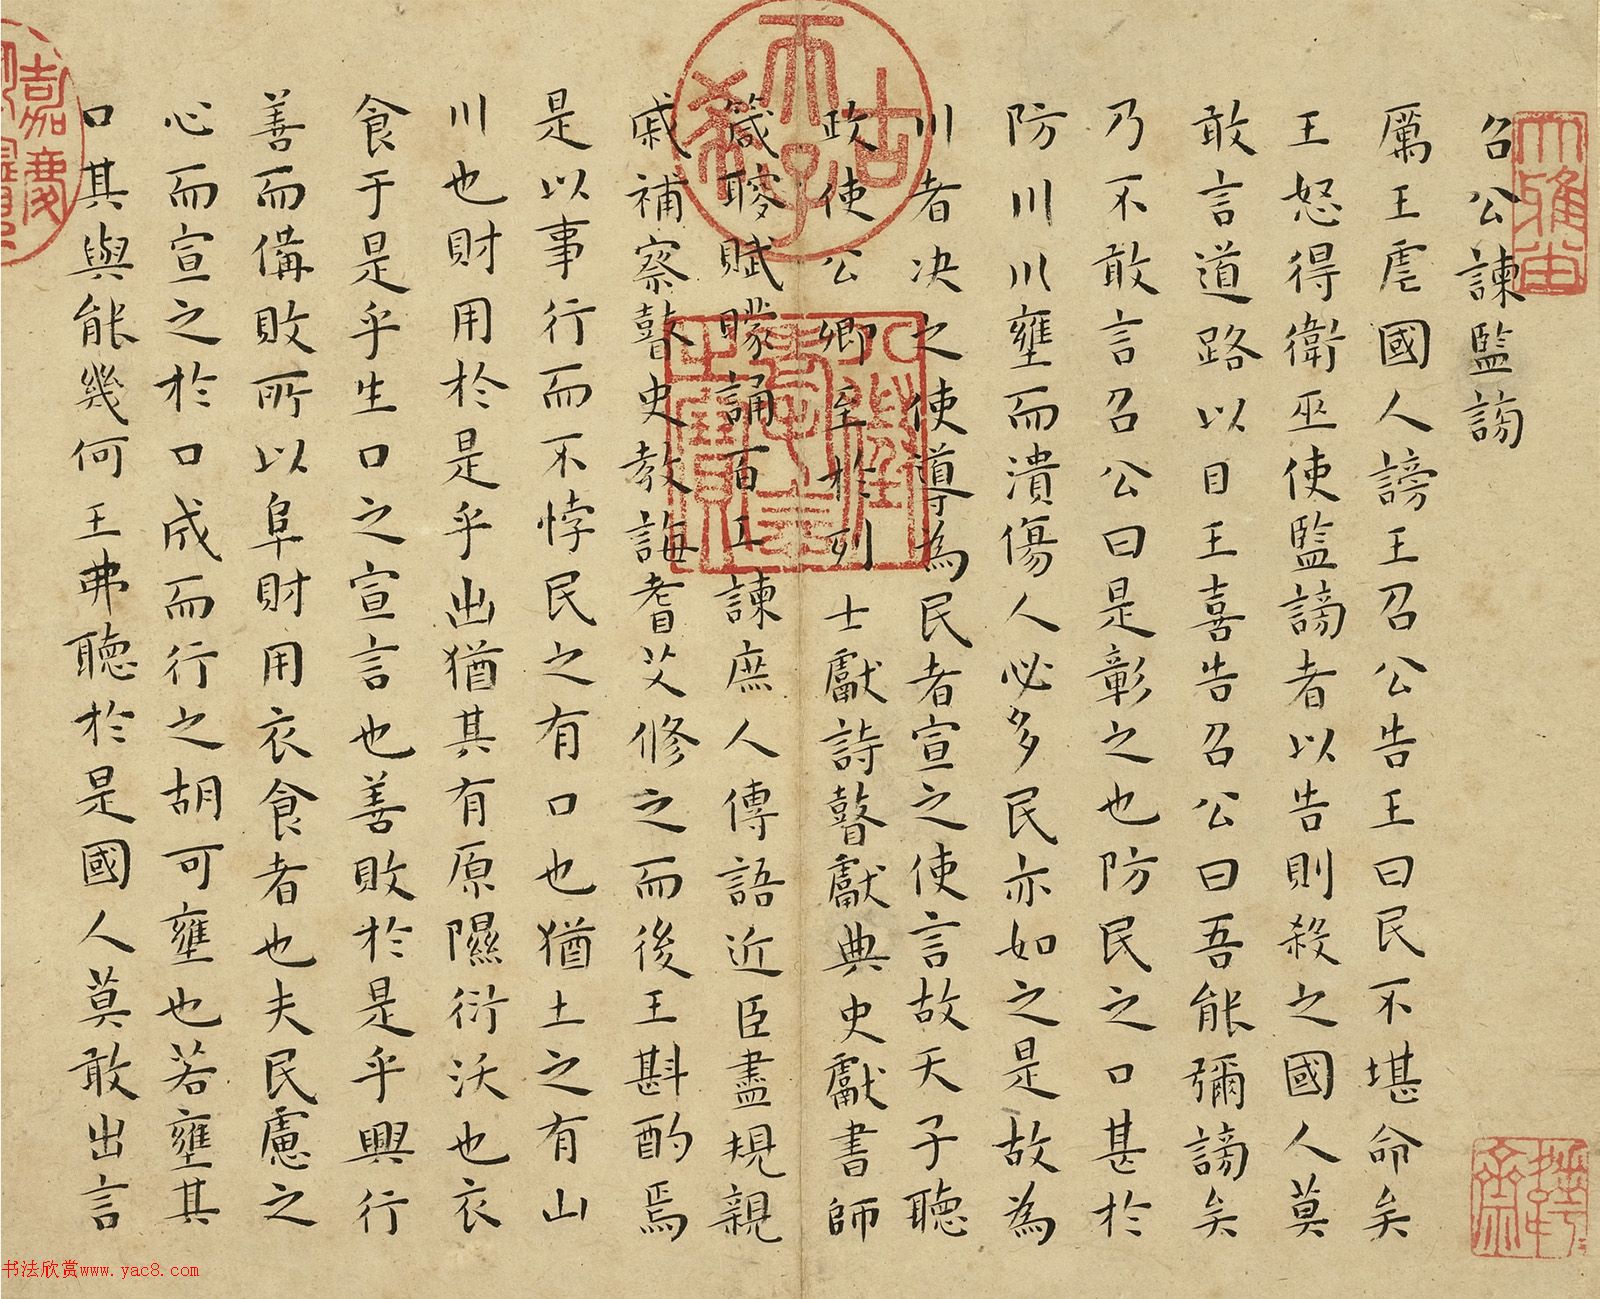 召公諫監謗
厲王虐國人謗王召公告王曰民不堪命矣
王怒得衛巫使監謗者以告則殺之國人莫
敢言道路以目王喜告召公曰吾能彌謗矣
乃不敢言召公曰是彰之也防民之口甚於
防川川壅而潰傷人必多民亦如之是故為
川者决之使導為民者宣之使言故天子聽
政使公卿至於列士獻詩瞽獻典史獻書師
箴瞍賦矇誦百工諫庶人傳語近臣盡規親
戚補察瞽史教誨耆艾修之而後王斟酌焉
是以事行而不悖民之有口也猶土之有山
川也財用於是乎出猶其有原隰衍沃也衣
食于是乎生口之宣言也善敗於是乎興行
善而備敗所以阜財用衣食者也夫民慮之
心而宣之於口成而行之胡可壅也若壅其
口其與能幾何王弗聽於是國人莫敢出言
古希天子
八徵耄念之寶
嘉慶
书法欣赏www.yac8.com